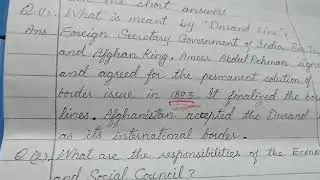 the short answers
Q(1). What is meant by "Durand Line"?
Ans Foreign Secretary Government of India
and Afghan King, Ameer Abdul Rehman signe
and agreed for the permanent solution of
border issue in 1893. It finalized the
lines. Afghanistan accepted the Durand
as its international border.
Q(2) What are the responsibilities of the Econo
and Social Council?